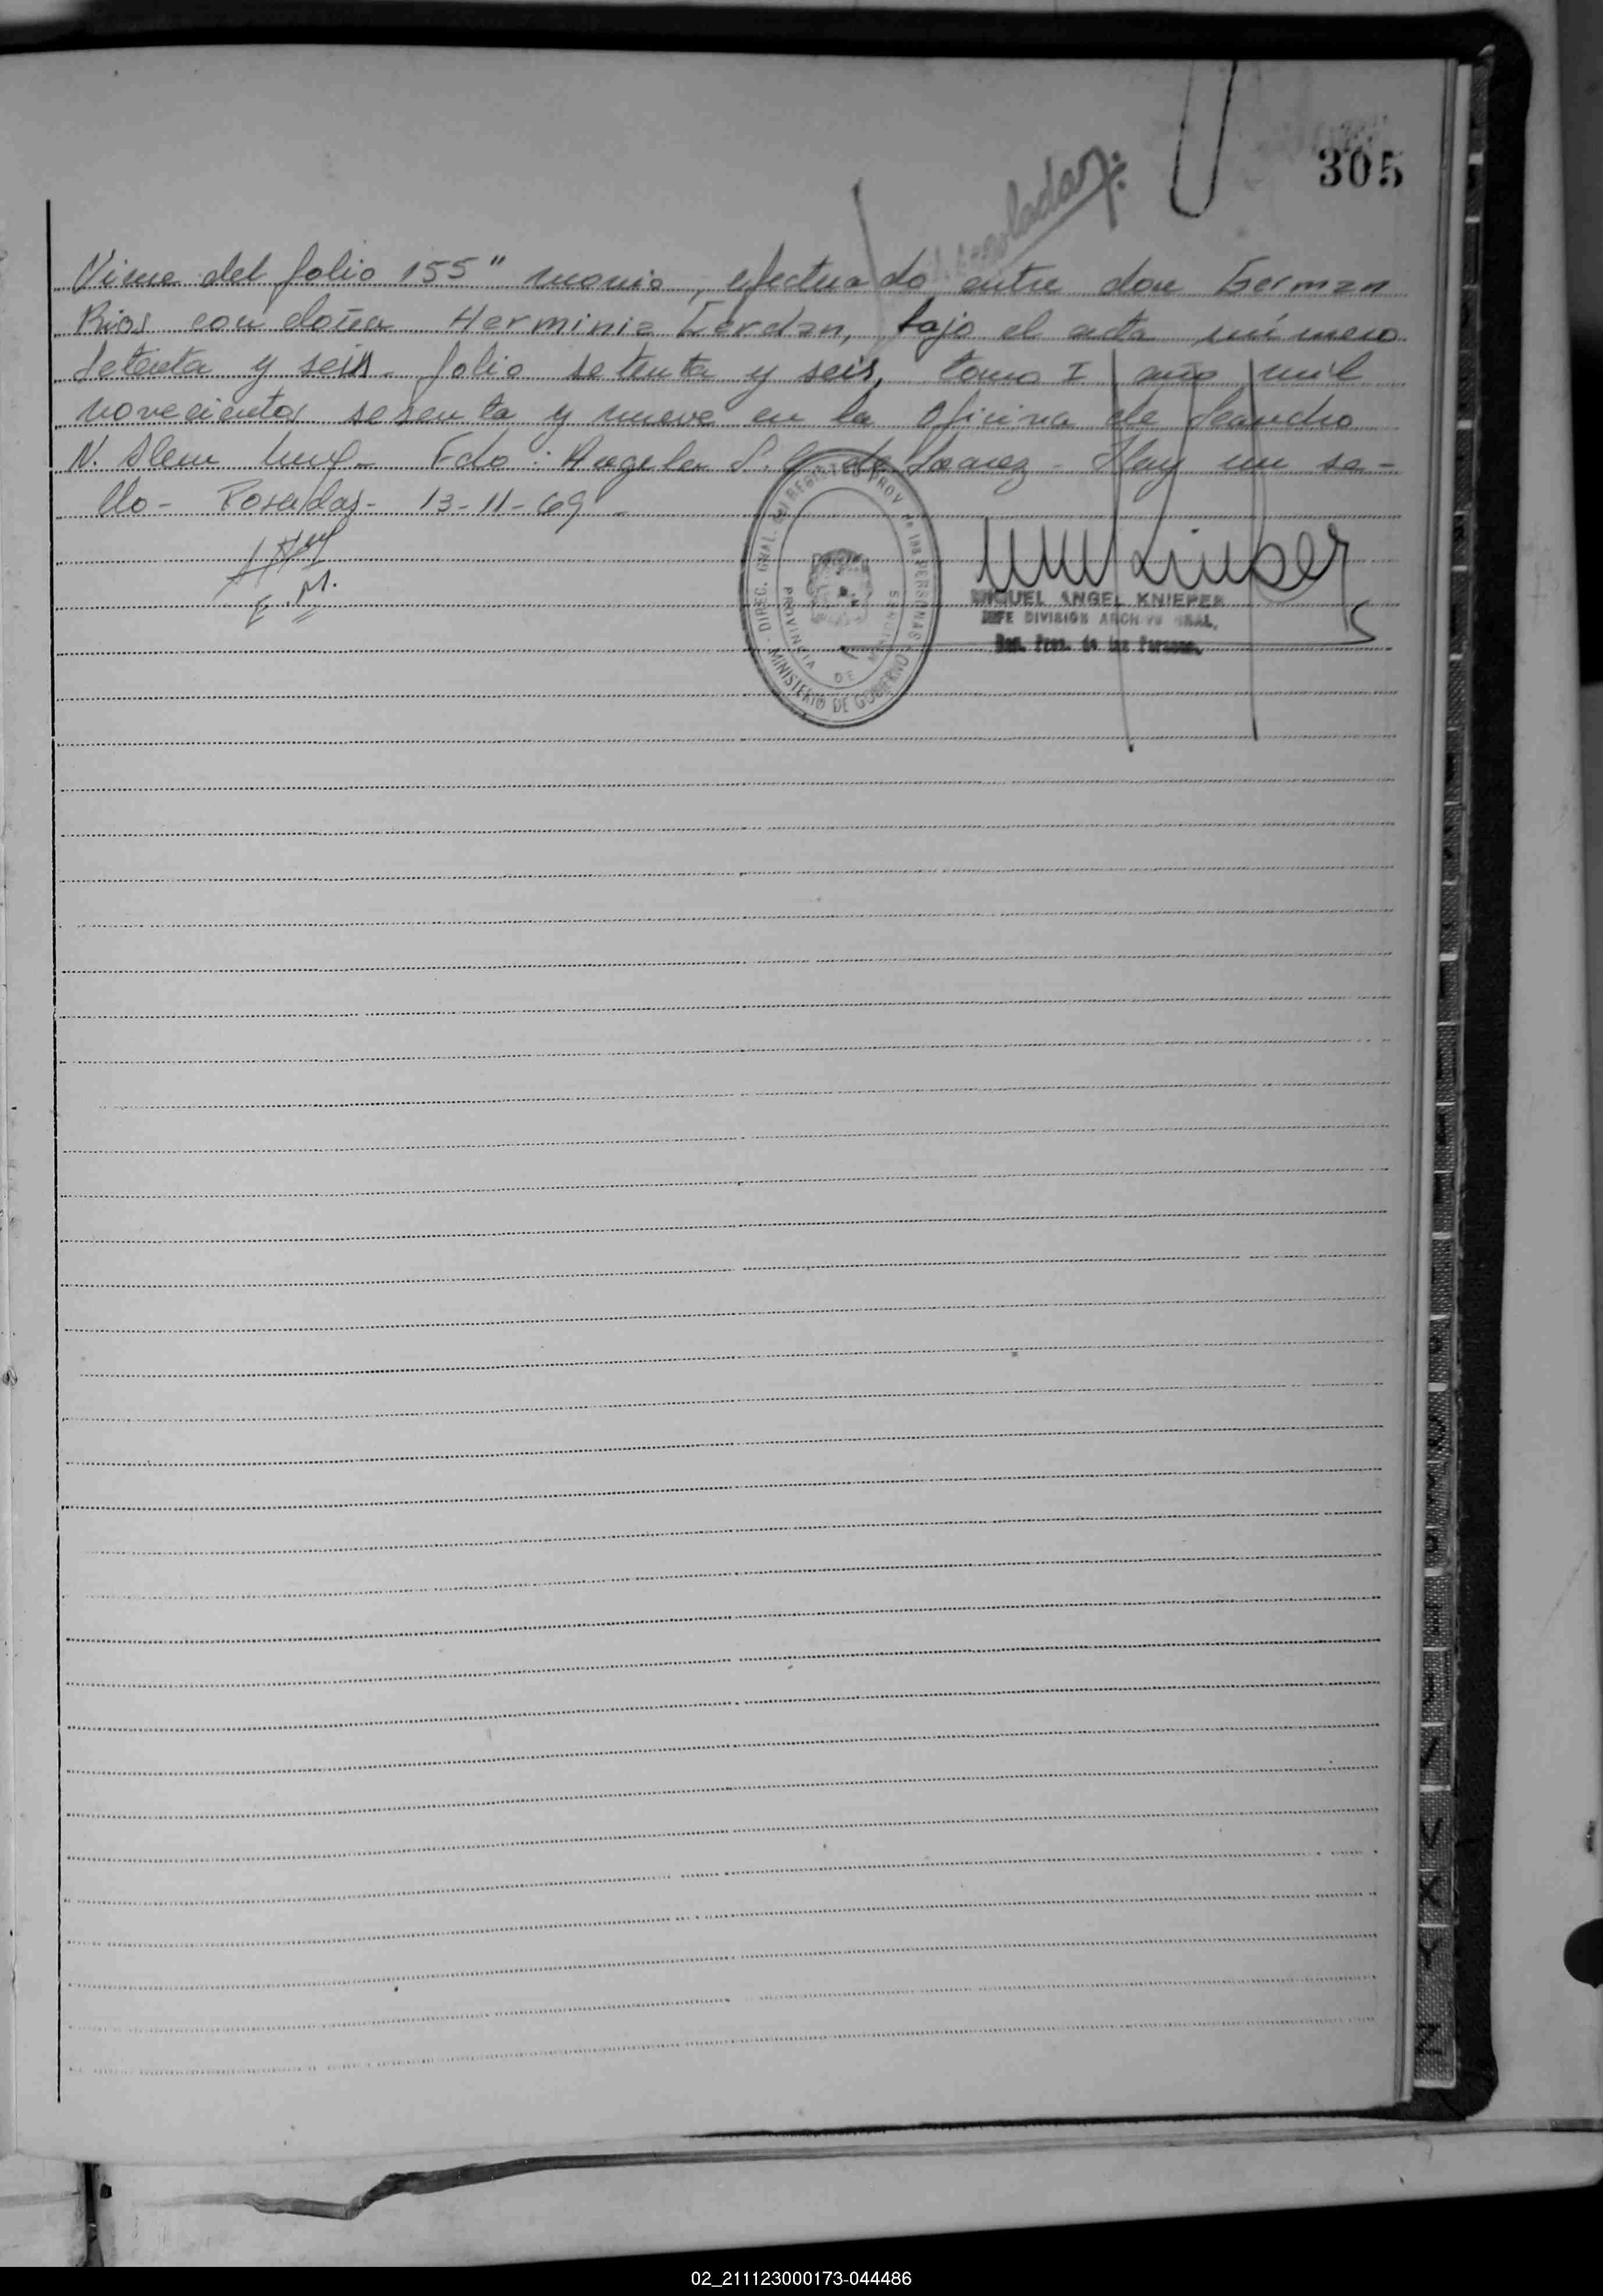 305
Viene del folio 155" monio, efectuado entre don German
Rios con doña Herminia Cerdan, bajo el acta número
setenta y seis. folio setenta y seis, tomo I año mil
novecientos sesenta y nueve en la Oficina de Leandro
N. Alem Fdo: Angela S. G. de Suarez - Hay un se-
llo - Posadas - 13-11-69 -
E. M.
DIREC. GRAL. DEL REGISTRO PROV. de las PERSONAS
MINISTERIO DE GOBIERNO
PROVINCIA DE MISIONES
MIGUEL ANGEL KNIEPER
JEFE DIVISION ARCHIVO GRAL.
Reg. Prov. de las Personas
02_211123000173-044486